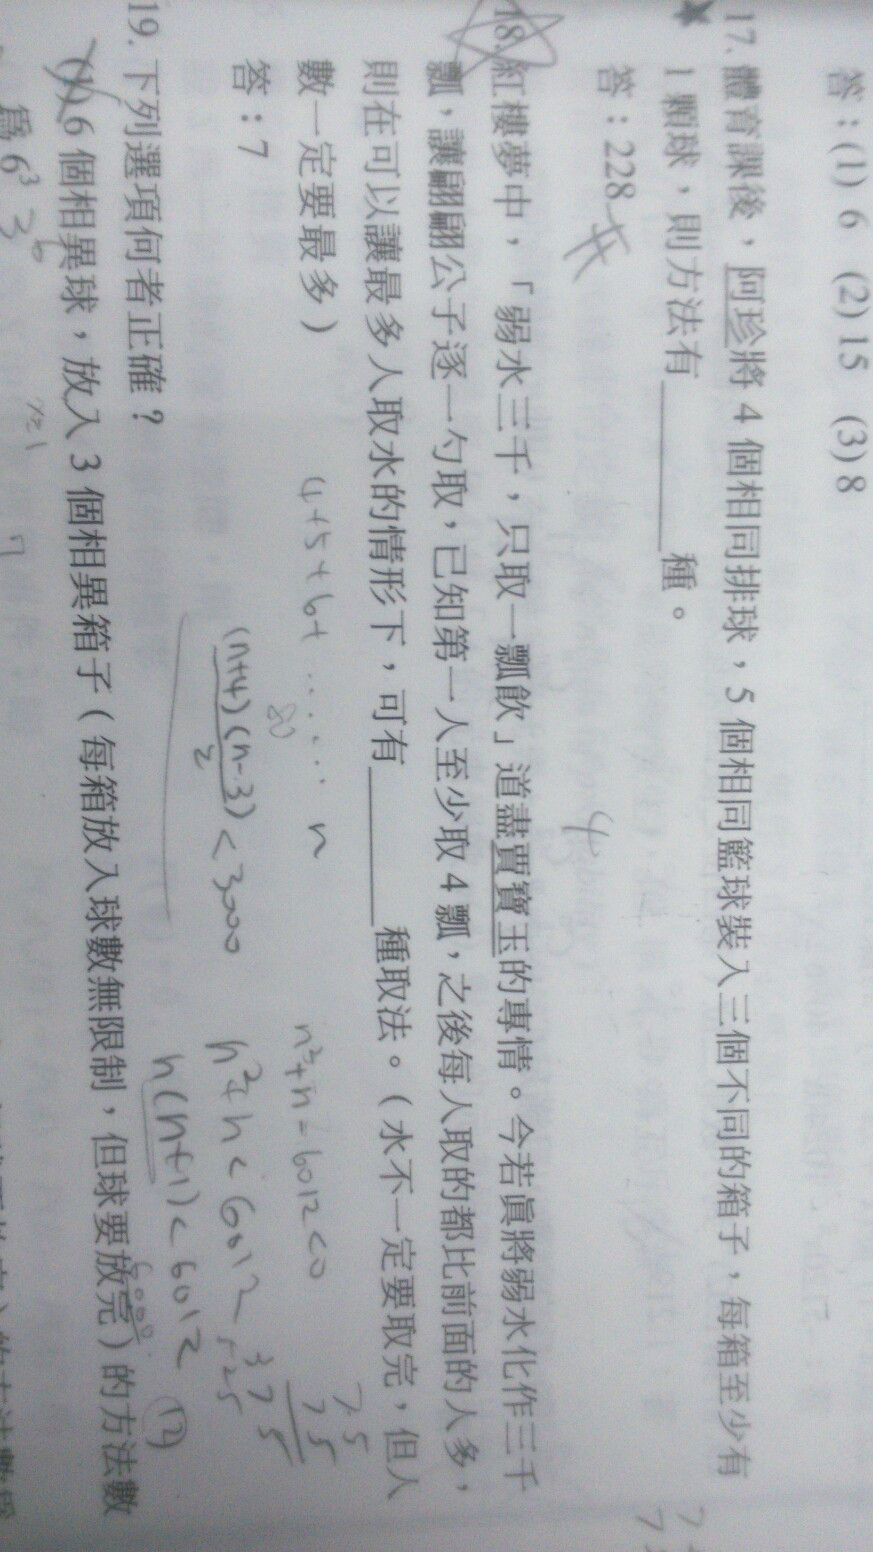 答：(1) 6 (2) 15 (3) 8
17. 體育課後，阿珍將 4 個相同排球，5 個相同籃球裝入三個不同的箱子，每箱至少有
1 顆球，則方法有________種。
答：228
18. 紅樓夢中，「弱水三千，只取一瓢飲」道盡賈寶玉的專情。今若真將弱水化作三千
瓢，讓翩翩公子逐一勺取，已知第一人至少取 4 瓢，之後每人取的都比前面的人多，
則在可以讓最多人取水的情形下，可有________種取法。（水不一定要取完，但人
數一定要最多）
答：7
4+5+6+ ...... n
(n+4)(n-3)/2 < 3000
80
4
n²+n-6012<0
n²+n<6012
n(n+1)<6012
6000
75
75
375
(12)
19. 下列選項何者正確？
(1) 6 個相異球，放入 3 個相異箱子（每箱放入球數無限制，但球要放完）的方法數
為 6³ 3⁶